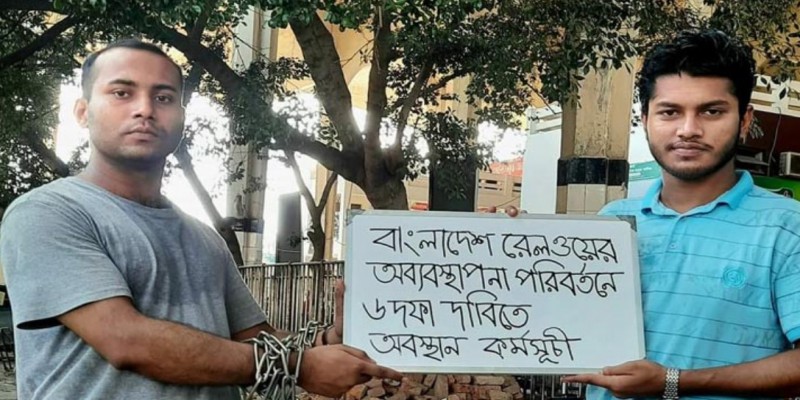 বাংলাদেশ রেলওয়ের
অব্যবস্থাপনা পরিবর্তনে
৬ দফা দাবিতে
অবস্থান কর্মসূচী